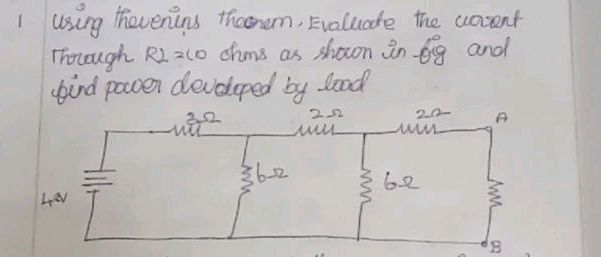 1 using thevenins theorem, Evaluate the current
Through RL=10 ohms as shown in fig and
find power developed by load
3Ω 2Ω 2Ω A
6Ω 6Ω
48V
B